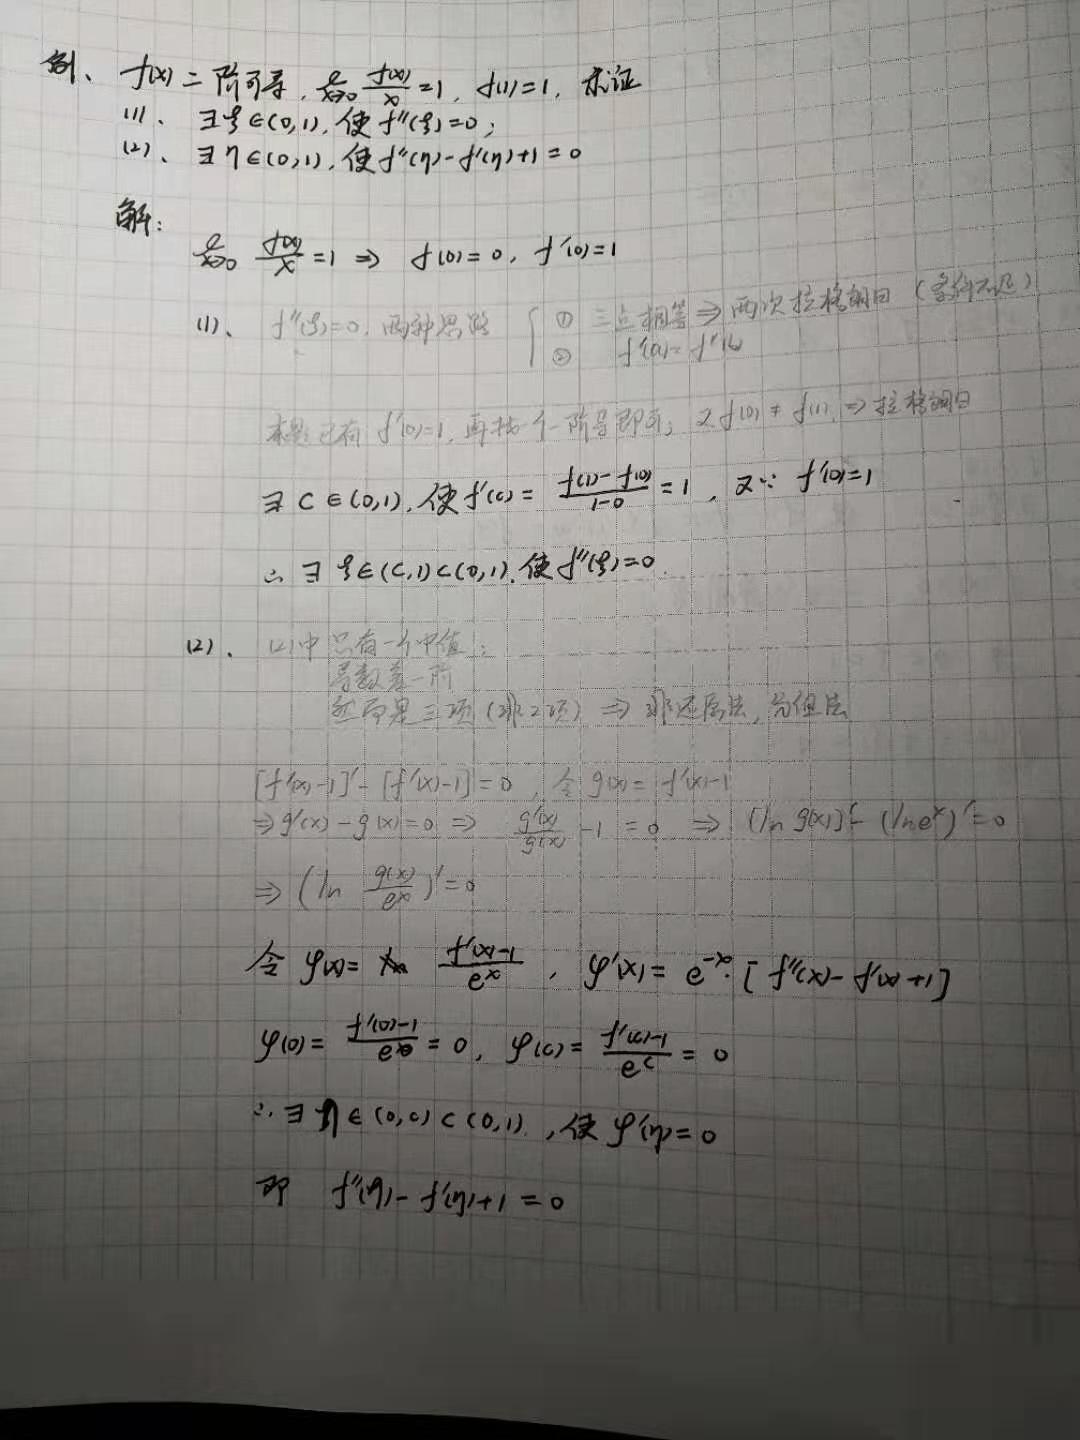 例、f(x)二阶可导, lim x→0 f(x)/x =1, f(1)=1, 求证
(1)、∃ξ∈(0,1), 使f''(ξ)=0;
(2)、∃η∈(0,1), 使f''(η)-f'(η)+1=0
解:
lim x→0 f(x)/x =1 ⇒ f(0)=0, f'(0)=1
(1)、 f''(ξ)=0, 两种思路 { ① 三点相等⇒两次拉格朗日 (条件不足)
② f'(a)=f'(b)
本题已有f'(0)=1, 再找一个一阶导即可; 又f(0)≠f(1), ⇒拉格朗日
∃ C∈(0,1), 使f'(c)= f(1)-f(0)/1-0 =1, 又∵ f'(0)=1
∴ ∃ ξ∈(C,1)⊂(0,1), 使f''(ξ)=0.
(2)、 (2)中只有一个中值;
导数差一阶
然而是三项(非2项) ⇒ 非还原法, 分组法
[f'(x)-1]'-[f'(x)-1]=0, 令g(x)=f'(x)-1
⇒g'(x)-g(x)=0 ⇒ g'(x)/g(x) -1 =0 ⇒ (ln g(x))'-(ln e^x)'=0
⇒ (ln g(x)/e^x)'=0
令φ(x)= f'(x)-1/e^x, φ'(x)= e^-x·[f''(x)-f'(x)+1]
φ(0)= f'(0)-1/e^0 =0, φ(c)= f'(c)-1/e^c = 0
∴ ∃ η∈(0,c)⊂(0,1), 使φ'(η)=0
即 f''(η)-f'(η)+1=0